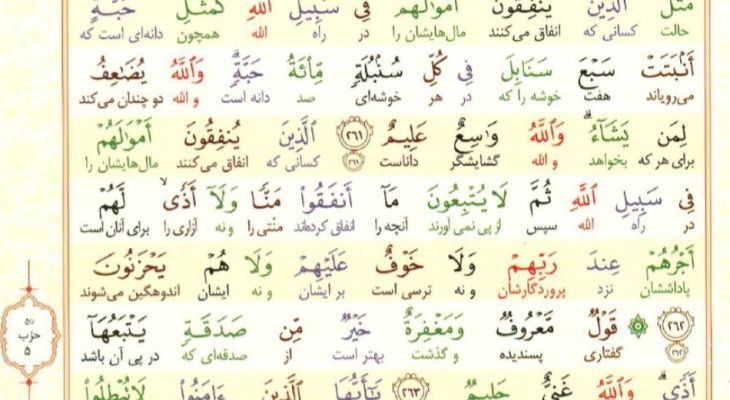 مَثَلُ ٱلَّذِينَ يُنفِقُونَ أَمۡوَٰلَهُمۡ فِي سَبِيلِ ٱللَّهِ كَمَثَلِ حَبَّةٍ
حالت کسانی که انفاق می‌کنند مال‌هایشان را در راه الله همچون دانه‌ای است که
أَنۢبَتَتۡ سَبۡعَ سَنَابِلَ فِي كُلِّ سُنۢبُلَةٖ مِّاْئَةُ حَبَّةٖۗ وَٱللَّهُ يُضَٰعِفُ
می‌رویاند هفت خوشه را که در هر خوشه‌ای صد دانه است و الله دو چندان می‌کند
لِمَن يَشَآءُۚ وَٱللَّهُ وَٰسِعٌ عَلِيمٌ ٢٦١ ٱلَّذِينَ يُنفِقُونَ أَمۡوَٰلَهُمۡ
برای هر که بخواهد و الله گشایشگر داناست ٢٦١ کسانی که انفاق می‌کنند مال‌هایشان را
فِي سَبِيلِ ٱللَّهِ ثُمَّ لَا يُتۡبِعُونَ مَآ أَنفَقُواْ مَنّٗا وَلَآ أَذٗى لَّهُمۡ
در راه الله سپس از پی نمی آورند آنچه را انفاق کرده‌اند منّتی را و نه آزاری را برای آنان است
أَجۡرُهُمۡ عِندَ رَبِّهِمۡ وَلَا خَوۡفٌ عَلَيۡهِمۡ وَلَا هُمۡ يَحۡزَنُونَ
پاداششان نزد پروردگارشان و نه ترسی است بر ایشان و نه ایشان اندوهگین می‌شوند
٢٦٢ قَوۡلٞ مَّعۡرُوفٞ وَمَغۡفِرَةٌ خَيۡرٞ مِّن صَدَقَةٖ يَتۡبَعُهَآ
٢٦٢ گفتاری پسندیده و گذشت بهتر است از صدقه‌ای که در پی آن باشد
أَذٗىۗ وَٱللَّهُ غَنِيٌّ حَلِيمٞ ٢٦٣ يَٰٓأَيُّهَا ٱلَّذِينَ ءَامَنُواْ لَا تُبۡطِلُواْ
ربع
حزب
۵